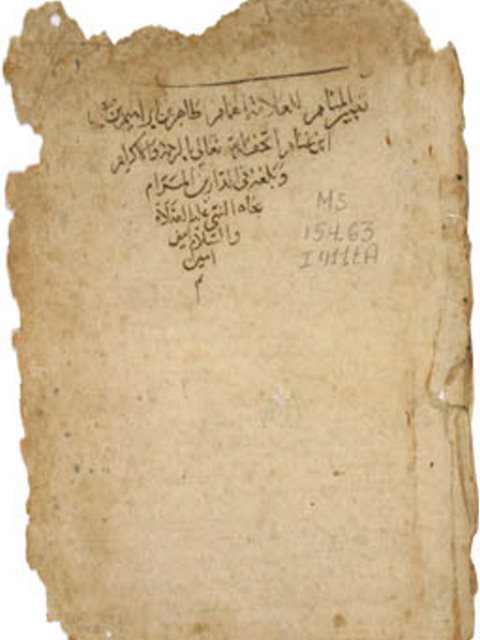 تعبير المنام للعلامة الهمام طاهر بن ابراهيم بن
ابن غنام اتحفه الله تعالى بالرحمة والاكرام
وبلغه في الدارين المرام
بجاه النبي عليه الصلاة
والسلام
امين
م
MS
154.63
I 4111A